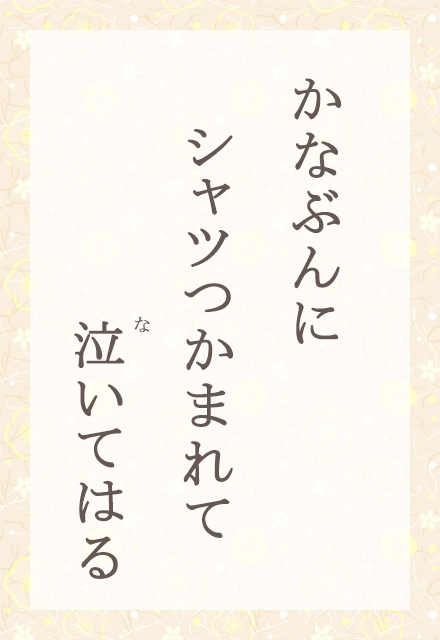 かなぶんに
シャツつかまれて
泣いてはる
な